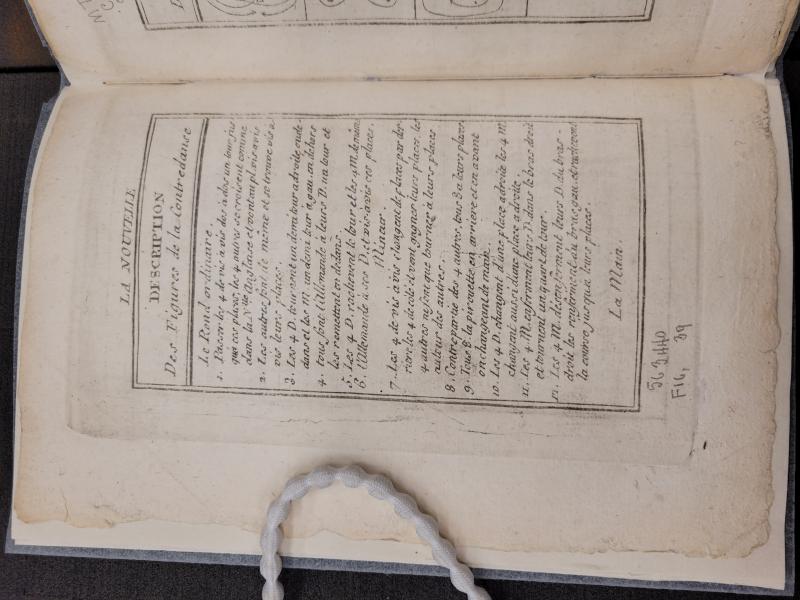 LA NOUVELLE
DESCRIPTION
Des Figures de la Contredanse
Le Rond ordinaire.
1. Passer les 4 de vis à vis dos à dos un tour jus
que ces places, les 4 autres se croisent comme
dans la Nlle Anglaise et vont au plvis avis
2. Les autres font de même et se trouve vis a
vis leurs places.
3. Les 4 D. tour font un demi tour a droite en de-
dans et les M. un demi tour à gau. en dehors
4. tous font l'Allemande à leurs D. un tour et
les remettent en dedans.
5. Les 4 D. rachevent le tour et les 4 M. de même
6. l'Allemande à ses D. et vis avis ces places.
Mineur.
7. Les 4 de vis à vis changent de places par der
riere les 4 de coté et vont gagner leurs places, les
4 autres ne font que tourner à leurs places
autour des autres.
8. Contrepartie des 4 autres, tous 8 a leurs places
9. Tous 8 la pirouette en arriere et en avant
en changeant de main.
10. Les 4 D. changent d'une place adroite les 4 M.
changent aussi d'une place a droite.
11. Les 4 M. enferment leurs D. dans le bras droit
et tournent un quart de tour.
12. Les 4 M. desenferment leurs D. du bras
droit les renferment du bras gau. et rachevent
la course jusqu'a leurs places.
La Main.
563440
FIG, 39